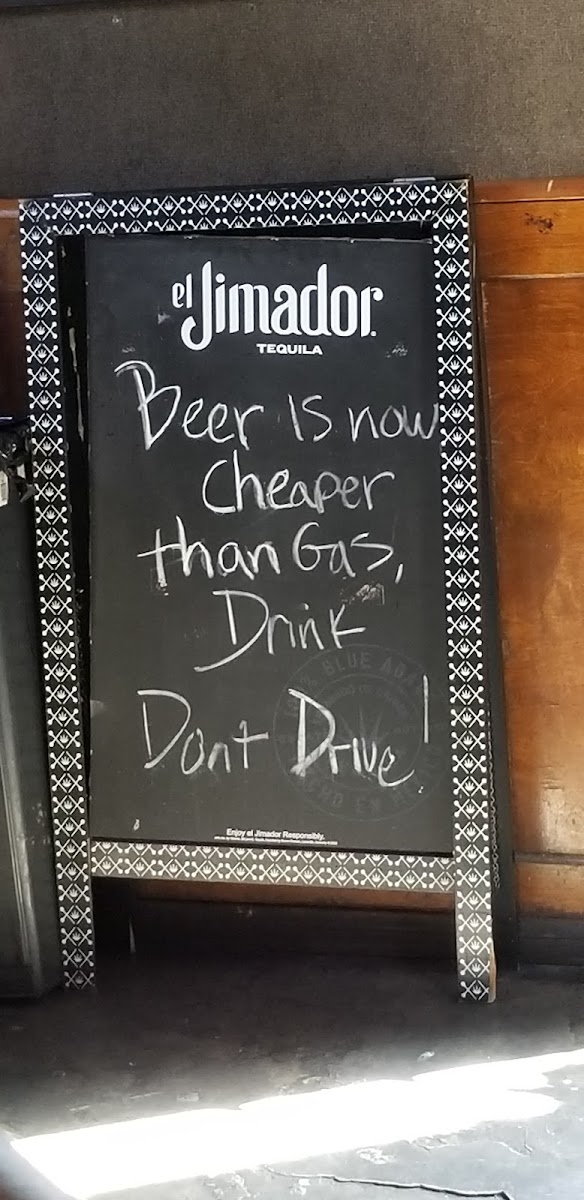 el Jimador
TEQUILA
Beer is now
Cheaper
than Gas,
Drink
Dont Drive!
Enjoy el Jimador Responsibly.